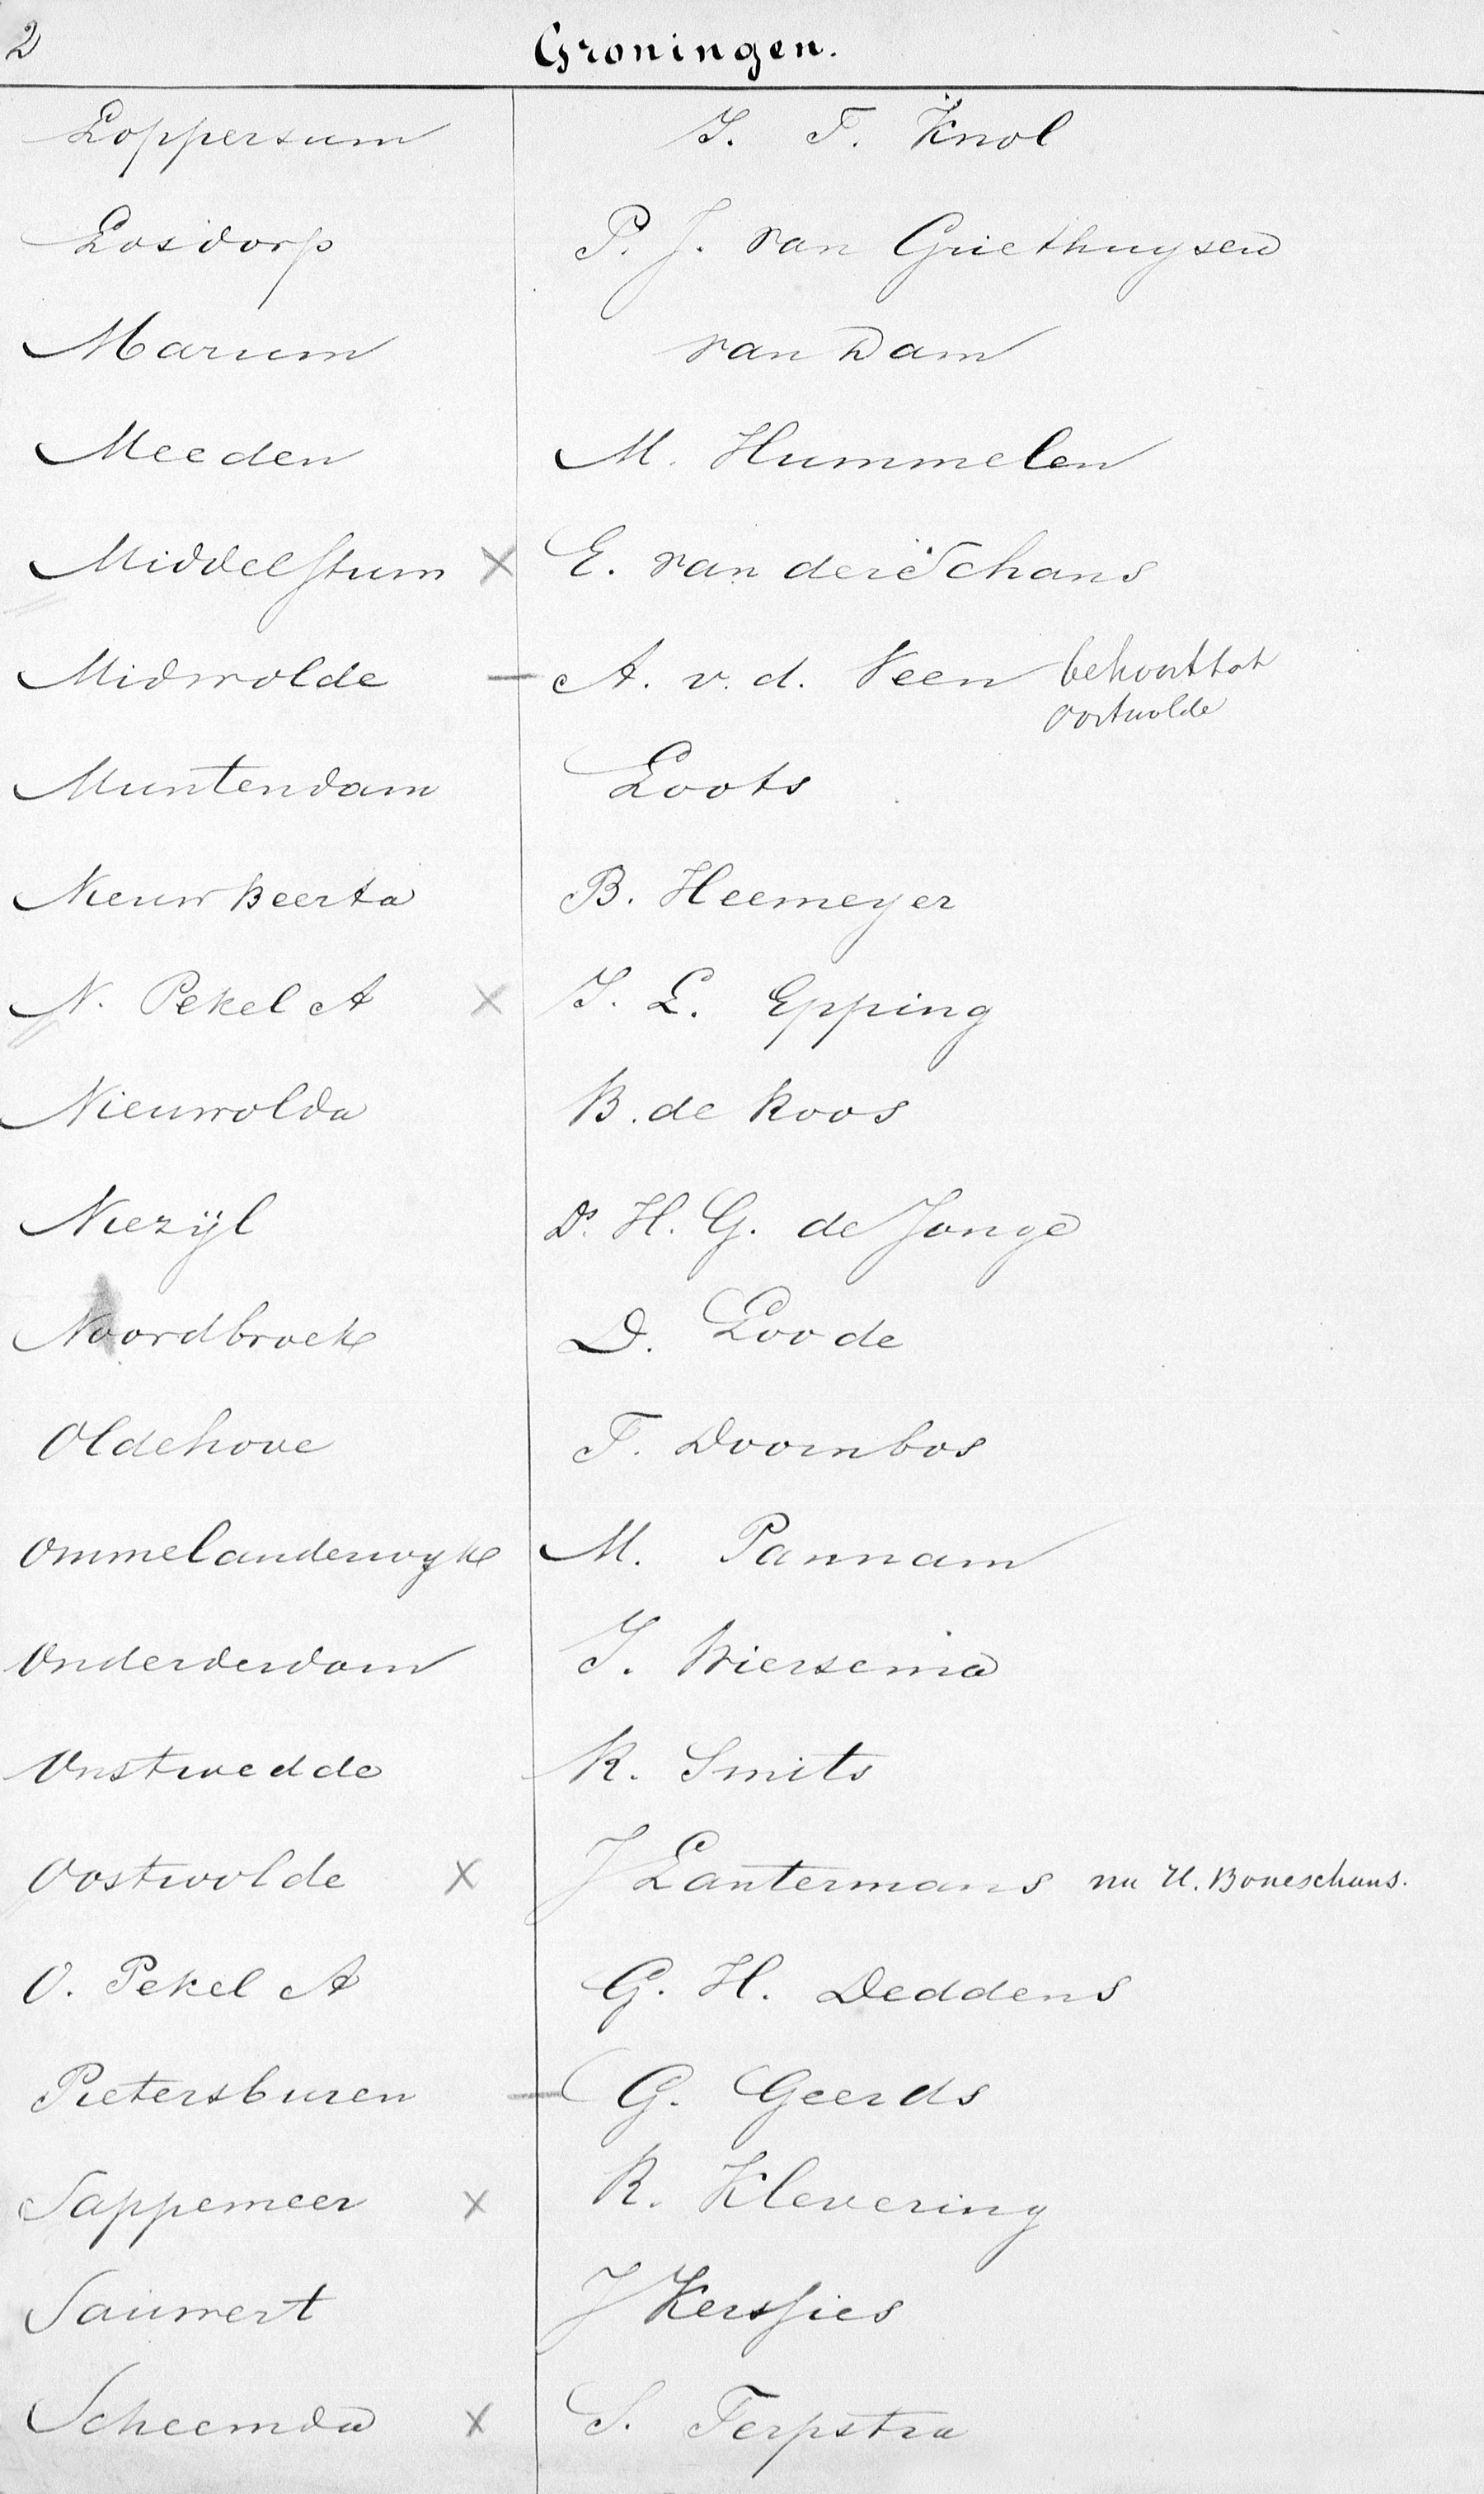 2 Groningen.
Loppersum J. F. Knol
Losdorp P. J. van Griethuysen
Marum van Dam
Meeden M. Hummelen
Middelstum X E. van der Schans
Midwolde — A. v. d. Veen behoort tot
Oostwolde
Muntendam Loots
Nieuw Beerta B. Heemeyer
N. Pekel A X J. L. Epping
Nieuwolda B. de Roos
Niezijl Ds. H. G. de Jonge
Noordbroek D. Loode
Oldehove F. Doornbos
Ommelanderwyk M. Pannam
Onderdendam J. Wiersema
Onstwedde R. Smits
Oostwolde X J Lantermans nu H. Boneschans.
O. Pekel A G. H. Deddens
Pietersburen — G. Geerds
Sappemeer X R. Klevering
Sauwert J Kersjies
Scheemda X S. Terpstra